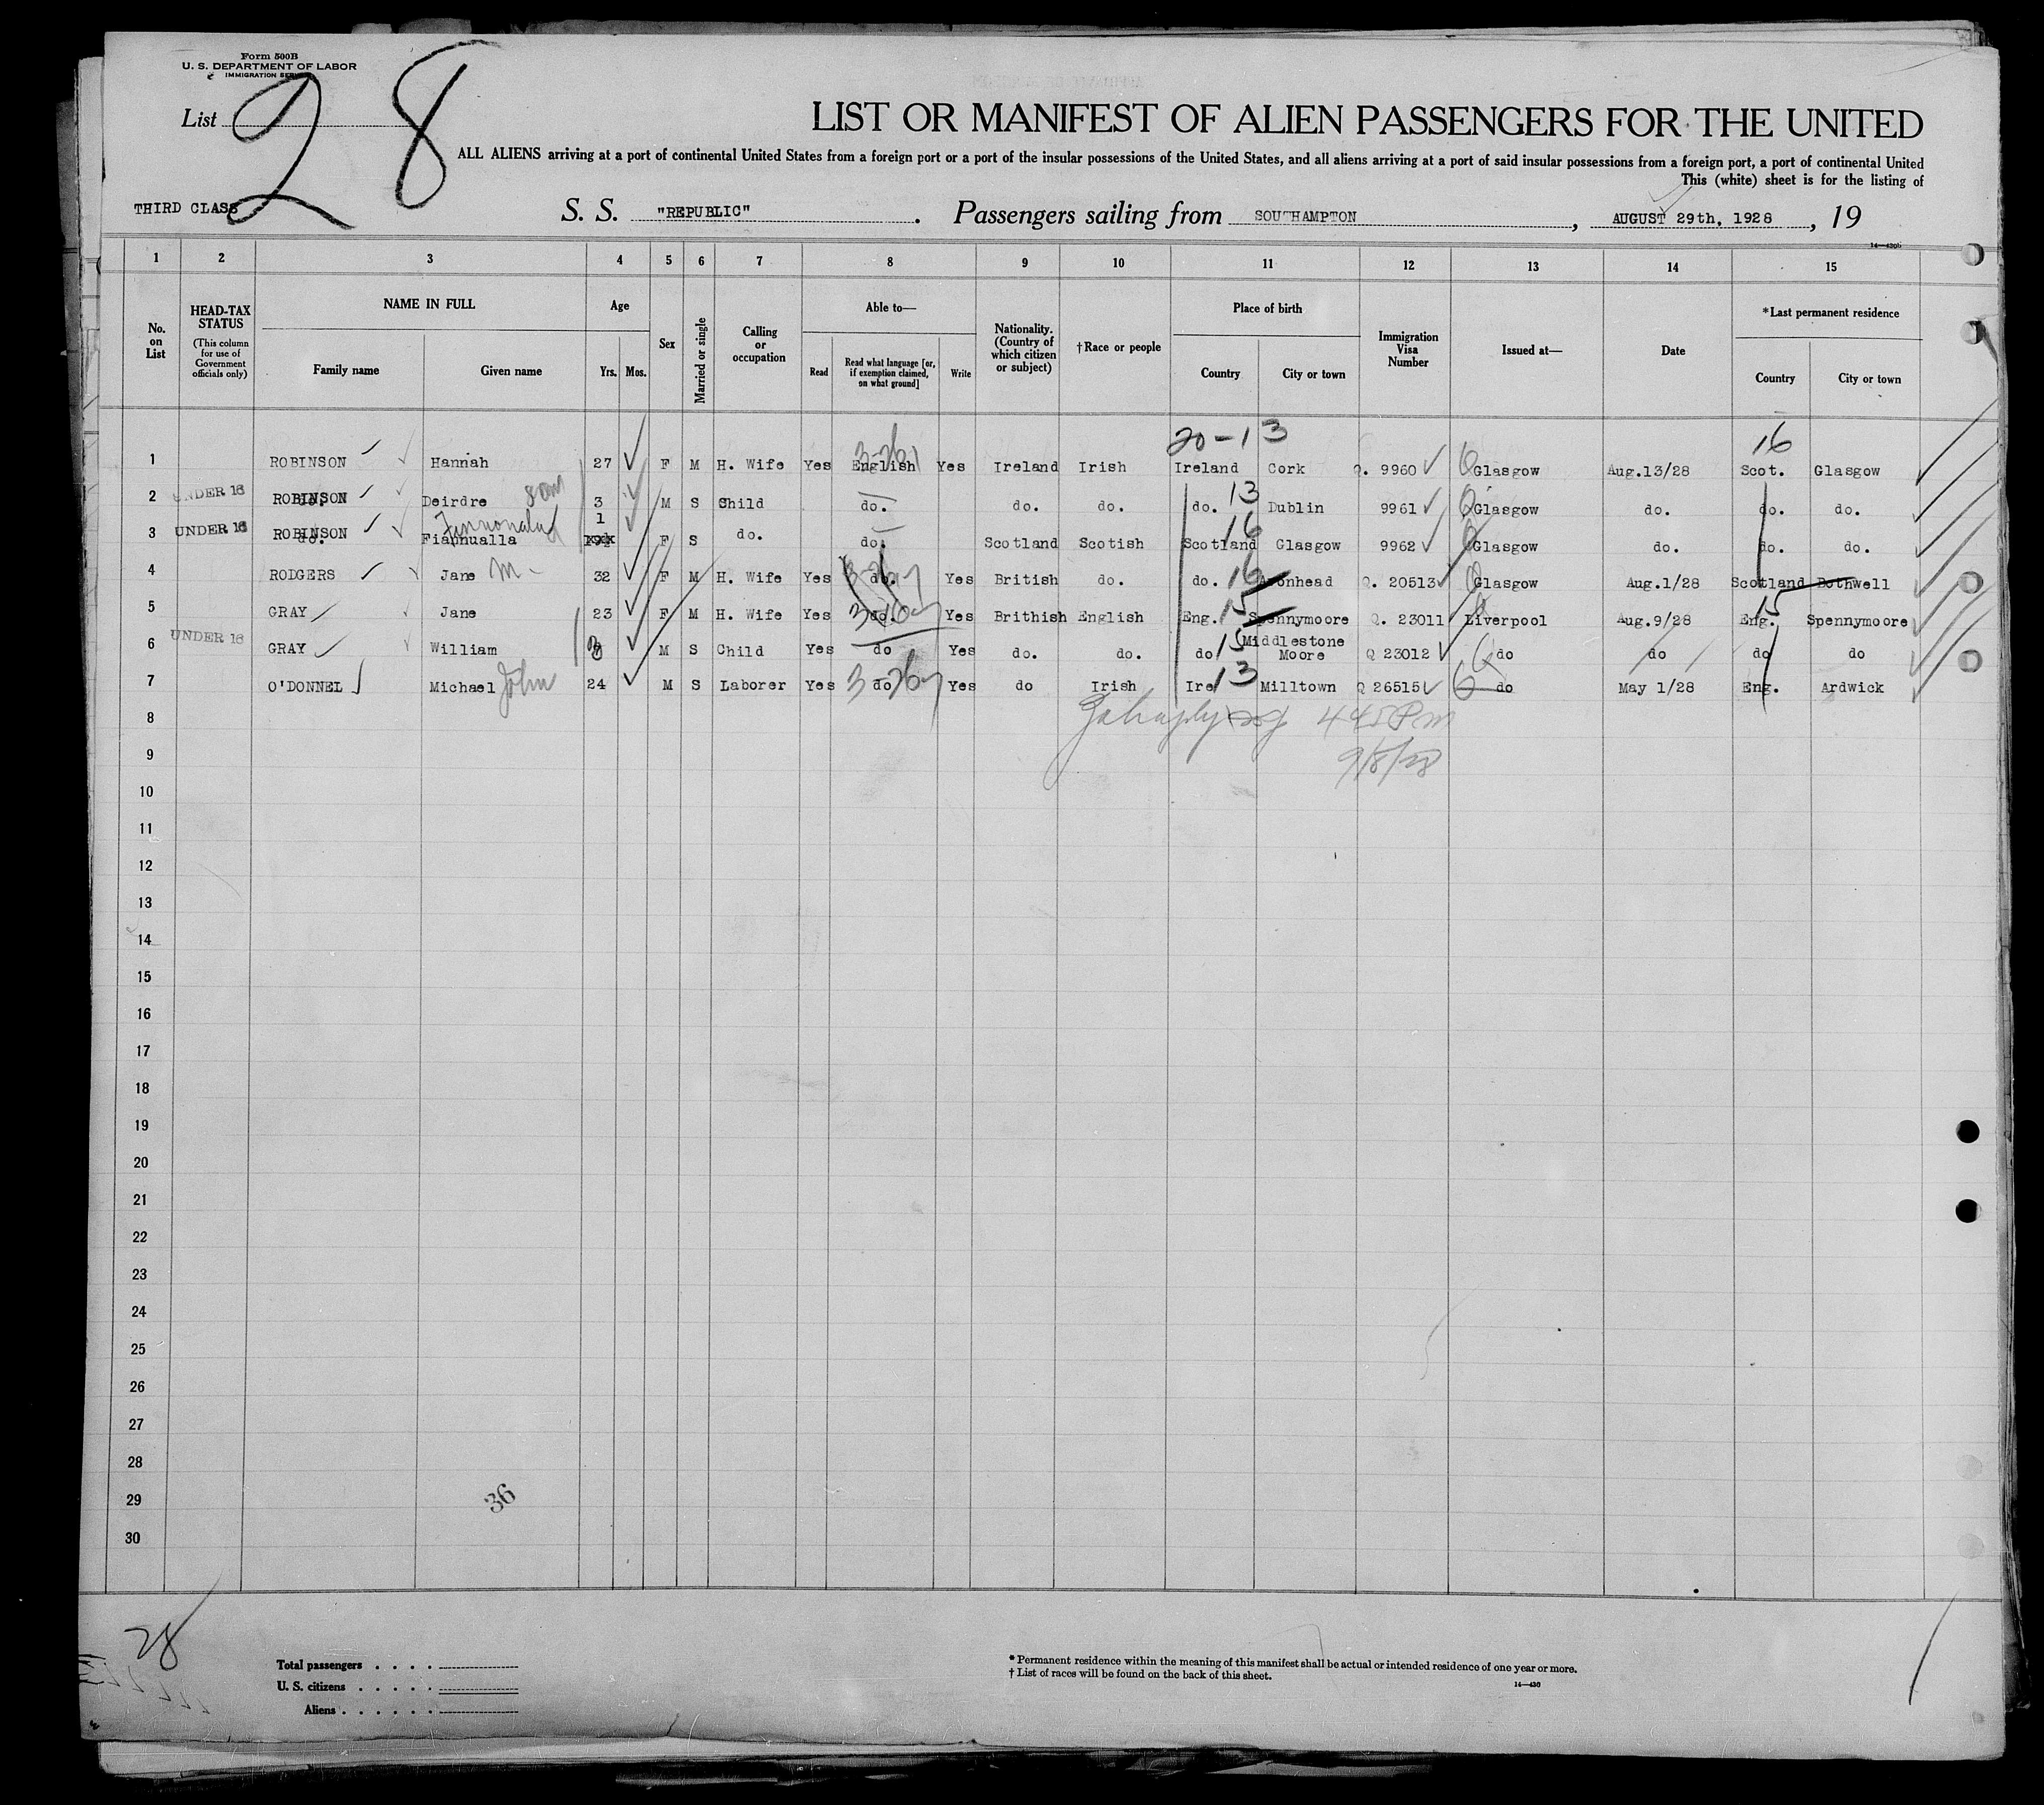 Form 500B
U. S. DEPARTMENT OF LABOR
IMMIGRATION
List 28
LIST OR MANIFEST OF ALIEN PASSENGERS FOR THE UNITED
ALL ALIENS arriving at a port of continental United States from a foreign port or a port of the insular possessions of the United States, and all aliens arriving at a port of said insular possessions from a foreign port, a port of continental United
This (white) sheet is for the listing of
THIRD CLASS S. S. "REPUBLIC". Passengers sailing from SOUTHAMPTON, AUGUST 29th, 1928, 19
14—430b
1 2 3 4 5 6 7 8 9 10 11 12 13 14 15
No. on List
HEAD-TAX STATUS (This column for use of Government officials only)
NAME IN FULL
Family name Given name
Age
Yrs. Mos.
Sex
Married or single
Calling or occupation
Able to—
Read Read what language [or, if exemption claimed, on what ground] Write
Nationality. (Country of which citizen or subject)
†Race or people
Place of birth
Country City or town
Immigration Visa Number
Issued at—
Date
*Last permanent residence
Country City or town
20-13 16
1 ROBINSON Hannah 27 F M H. Wife Yes English Yes Ireland Irish Ireland Cork Q. 9960 Glasgow Aug.13/28 Scot. Glasgow
2 UNDER 16 ROBINSON do. Deirdre 3 M S Child do. do. do. do. 13 Dublin 9961 Glasgow do. do. do.
3 UNDER 16 ROBINSON do. Fiannualla 1 F S do. do. Scotland Scotish Scotland 16 Glasgow 9962 Glasgow do. do. do.
4 RODGERS Jane M. 32 F M H. Wife Yes do. Yes British do. do. 16 Q. 20513 Glasgow Aug.1/28 Scotland Bothwell
5 GRAY Jane 23 F M H. Wife Yes do. Yes Brithish English Eng. 15 Spennymoore Q. 23011 Liverpool Aug.9/28 Eng. 15 Spennymoore
6 UNDER 16 GRAY William M S Child Yes do Yes do. do. do 15 Middlestone Moore Q 23012 do do do do
7 O'DONNEL Michael John 24 M S Laborer Yes do Yes do Irish Ire 13 Milltown Q 26515 do May 1/28 Eng. Ardwick
8 445 PM
9 9/8/28
10
11
12
13
14
15
16
17
18
19
20
21
22
23
24
25
26
27
28
29
36
30
28
Total passengers
U. S. citizens
Aliens
* Permanent residence within the meaning of this manifest shall be actual or intended residence of one year or more.
† List of races will be found on the back of this sheet.
14—430